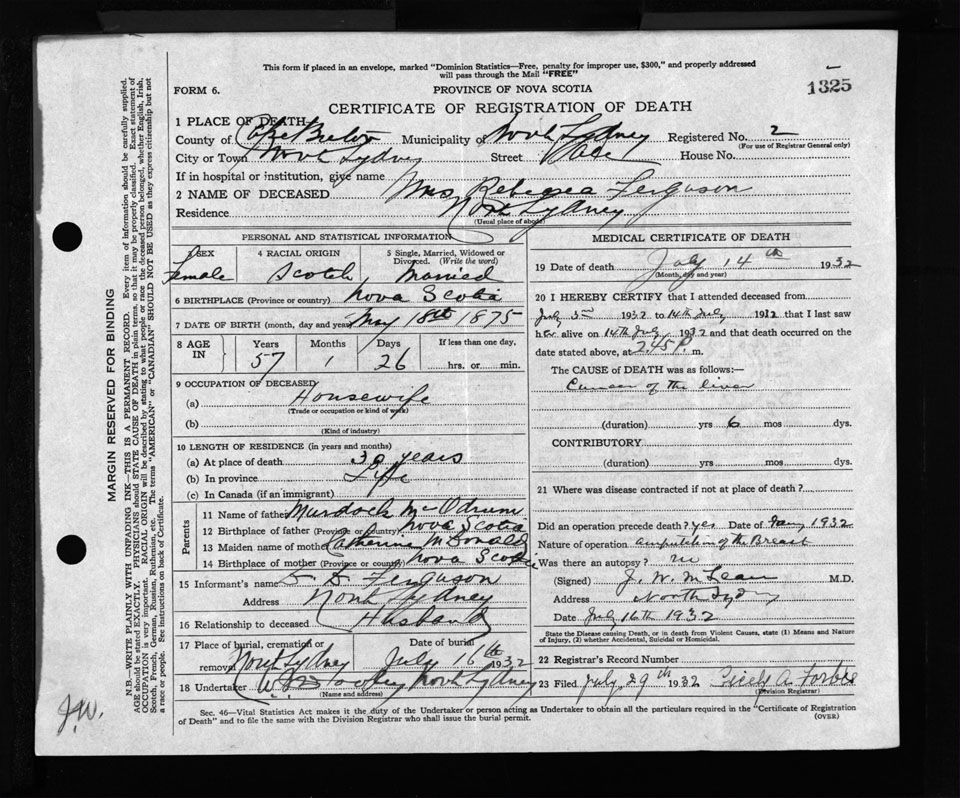 This form if placed in an envelope, marked "Dominion Statistics—Free, penalty for improper use, $300," and properly addressed
will pass through the Mail "FREE"
FORM 6.
PROVINCE OF NOVA SCOTIA
1325
CERTIFICATE OF REGISTRATION OF DEATH
1 PLACE OF DEATH
County of Cape Breton Municipality of North Sydney Registered No. 2
(For use of Registrar General only)
City or Town North Sydney Street House No.
If in hospital or institution, give name
2 NAME OF DECEASED Mrs Rebecca Ferguson
Residence North Sydney
(Usual place of abode)
PERSONAL AND STATISTICAL INFORMATION
3 SEX 4 RACIAL ORIGIN 5 Single, Married, Widowed or
Divorced. (Write the word)
Female Scotch Married
6 BIRTHPLACE (Province or country) Nova Scotia
7 DATE OF BIRTH (month, day and year) May 18th 1875
8 AGE IN Years Months Days If less than one day,
57 1 26 hrs. or min.
9 OCCUPATION OF DECEASED
(a) Housewife
(Trade or occupation or kind of work)
(b)
(Kind of industry)
10 LENGTH OF RESIDENCE (in years and months)
(a) At place of death 30 years
(b) In province Life
(c) In Canada (if an immigrant)
Parents
11 Name of father Murdock McOdrum
12 Birthplace of father (Province or country) Nova Scotia
13 Maiden name of mother Catherine McDonald
14 Birthplace of mother (Province or country) Nova Scotia
15 Informant's name Ferguson
Address North Sydney
16 Relationship to deceased Husband
17 Place of burial, cremation or Date of burial
removal North Sydney July 16th 1932
18 Undertaker North Sydney
(Name and address)
MEDICAL CERTIFICATE OF DEATH
19 Date of death July 14th 1932
(Month, day and year)
20 I HEREBY CERTIFY that I attended deceased from
July 3rd 1932 to 14th July 1932 that I last saw
her alive on 14th July 1932 and that death occurred on the
date stated above, at 2.45 P m.
The CAUSE OF DEATH was as follows:—
Cancer of the liver
(duration) yrs 6 mos dys.
CONTRIBUTORY
(duration) yrs. mos. dys.
21 Where was disease contracted if not at place of death?
Did an operation precede death? yes Date of Jany 1932
Nature of operation amputation of the Breast
Was there an autopsy? no
(Signed) J. W. McLean M.D.
Address North Sydney
Date July 16th 1932
State the Disease causing Death, or in death from Violent Causes, state (1) Means and Nature
of Injury, (2) whether Accidental, Suicidal or Homicidal.
22 Registrar's Record Number
23 Filed July 29th 1932 A. Forbes
(Division Registrar)
Sec. 46—Vital Statistics Act makes it the duty of the Undertaker or person acting as Undertaker to obtain all the particulars required in the "Certificate of Registration
of Death" and to file the same with the Division Registrar who shall issue the burial permit.
(OVER)
MARGIN RESERVED FOR BINDING
N.B.—WRITE PLAINLY WITH UNFADING INK—THIS IS A PERMANENT RECORD. Every item of information should be carefully supplied.
AGE should be stated EXACTLY. PHYSICIANS should STATE CAUSE OF DEATH in plain terms, so that it may be properly classified. Exact statement of
OCCUPATION is very important. RACIAL ORIGIN will be described by stating to what people or race the deceased person belonged, whether English, Irish,
Scotch, French, German, Russian, Ruthenian, etc. The terms "AMERICAN" or "CANADIAN" SHOULD NOT BE USED as they express citizenship but not
a race or people. See instructions on back of Certificate.
J.W.